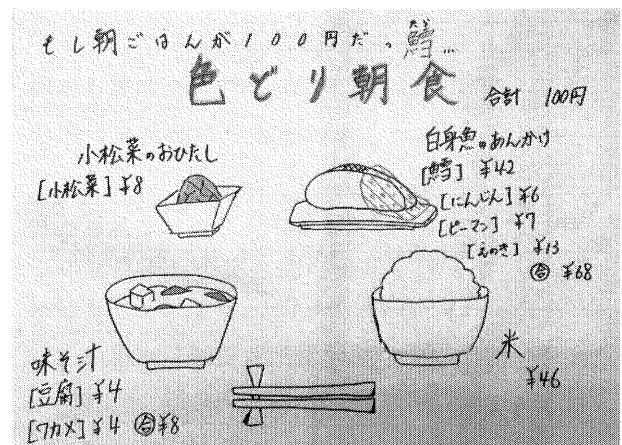 もし朝ごはんが100円だっ鱈...
たら
色どり朝食
合計 100円
小松菜のおひたし
[小松菜] ¥8
白身魚のあんかけ
[鱈] ¥42
[にんじん] ¥6
[ピーマン] ¥7
[えのき] ¥13
合 ¥68
味そ汁
[豆腐] ¥4
[ワカメ] ¥4 合 ¥8
米
¥46